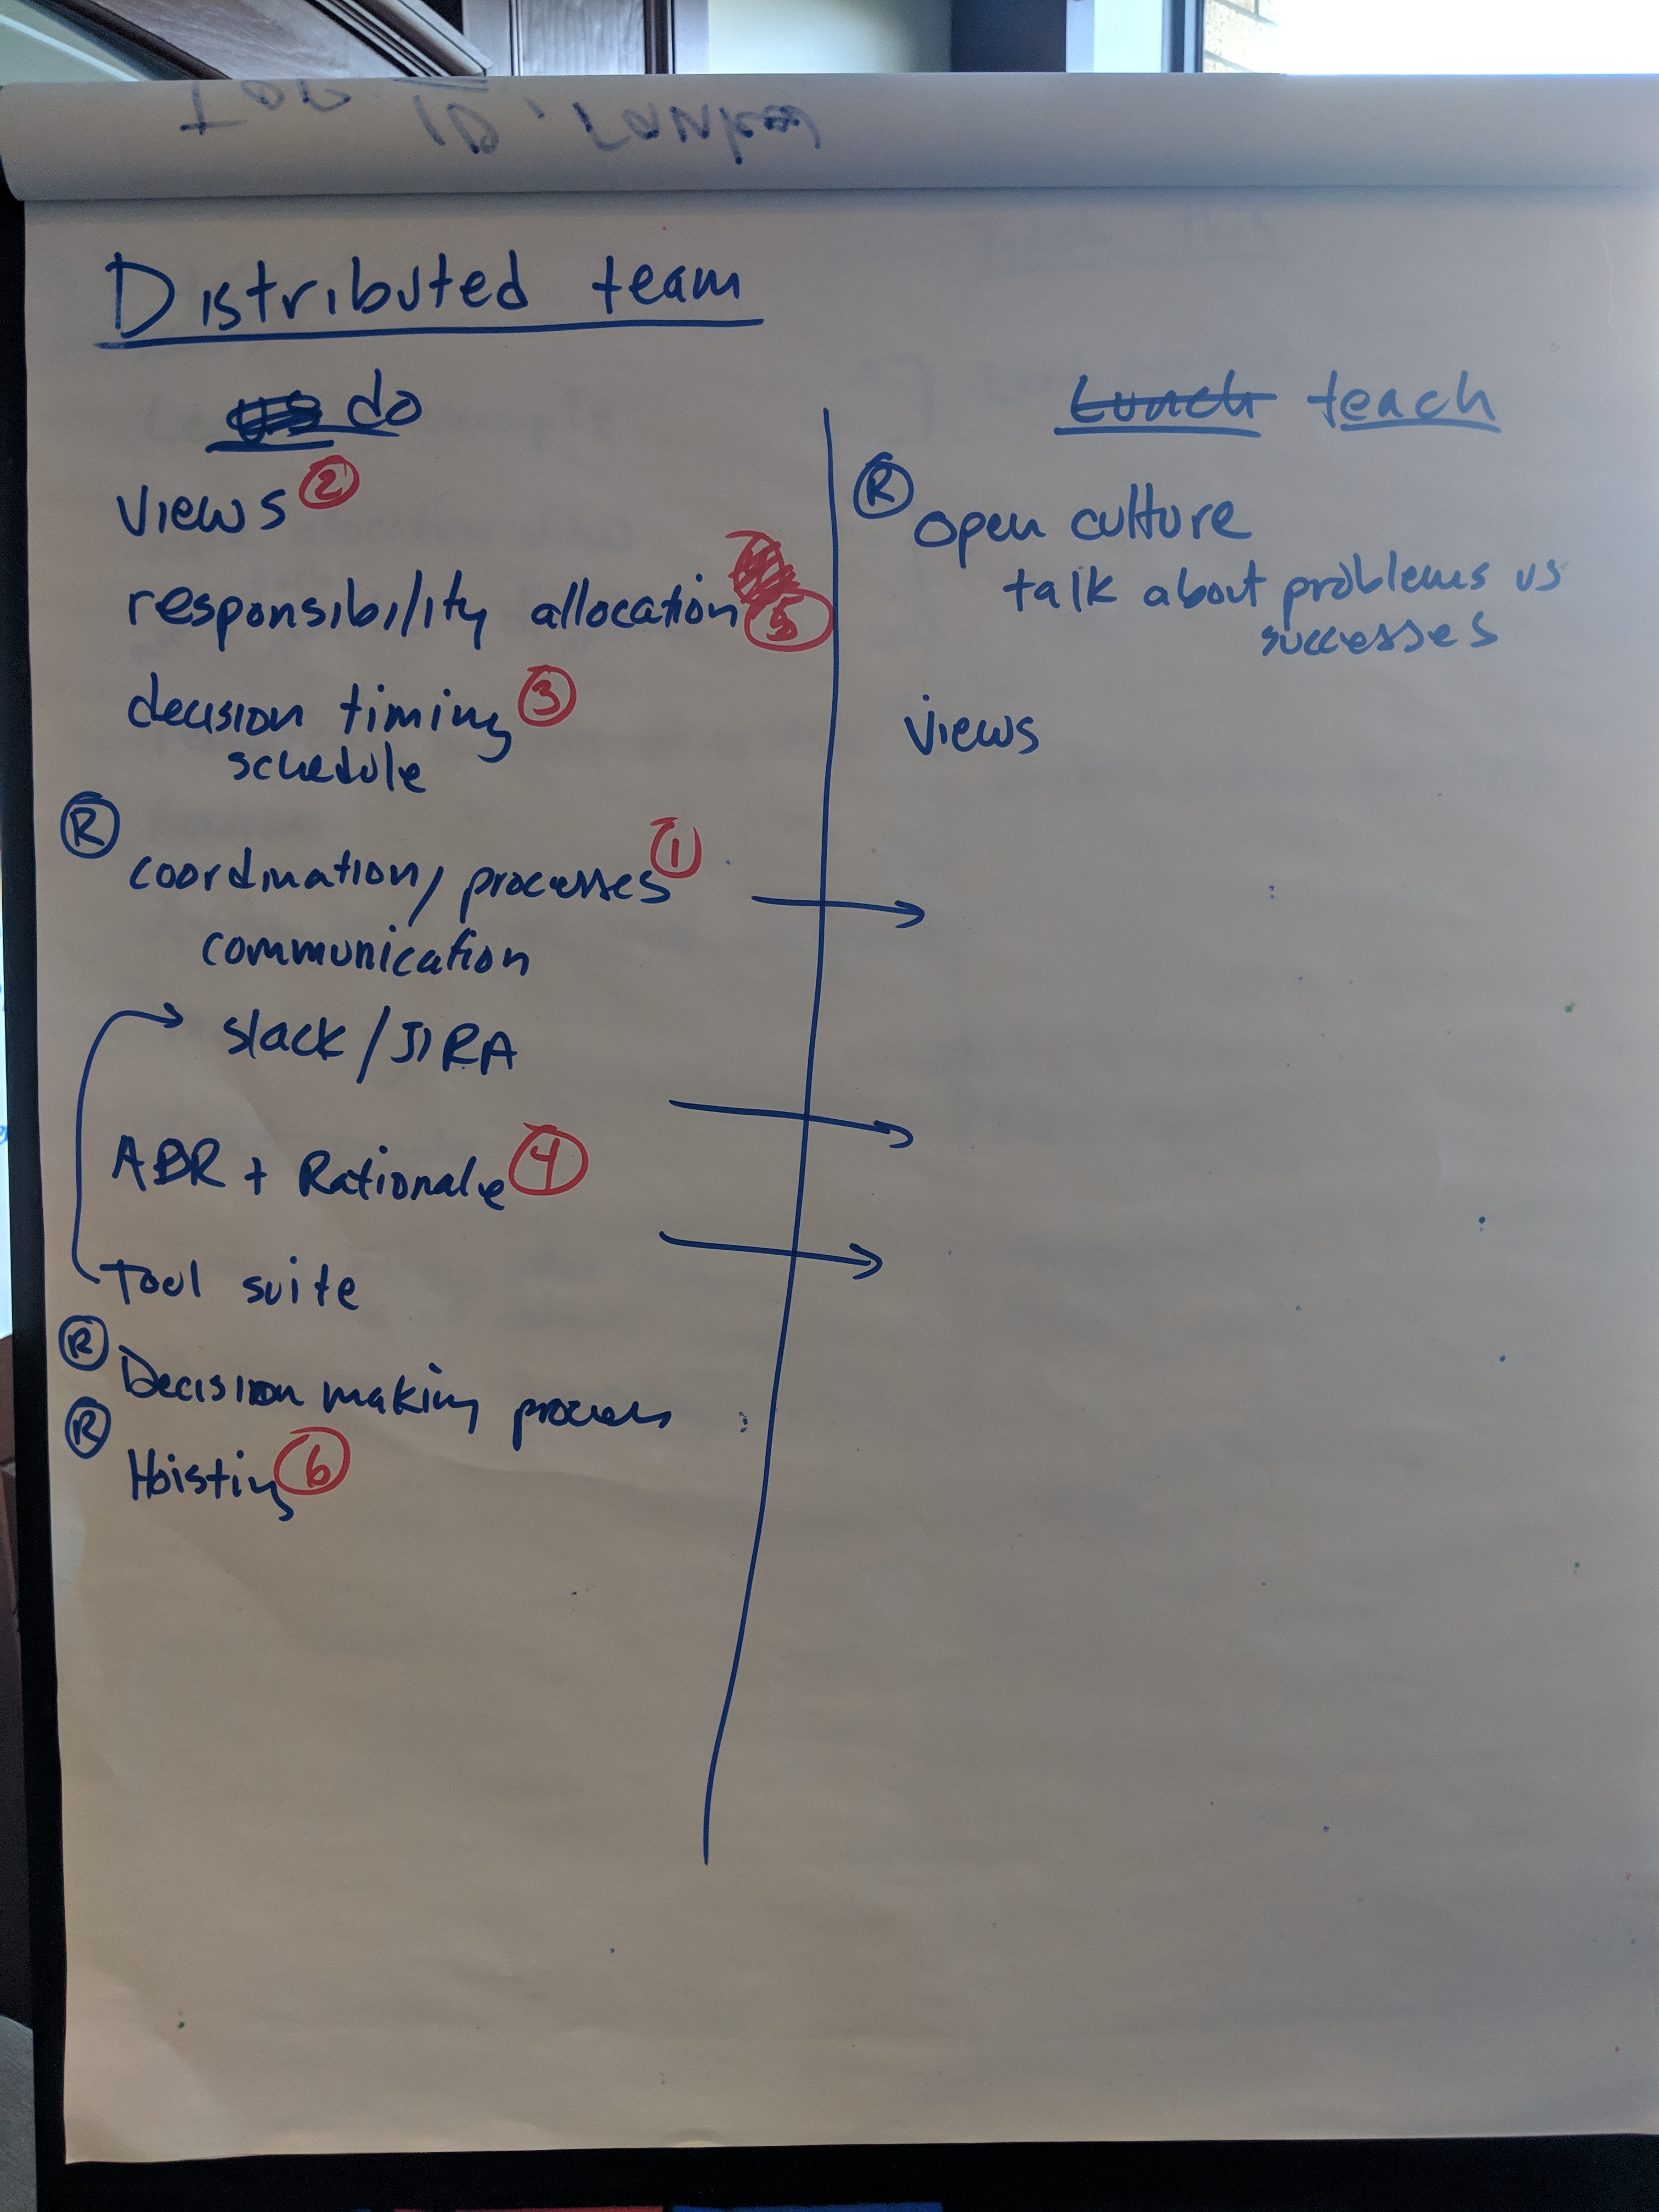 Distributed team
do
teach
views ②
responsibility allocation ⑤
decision timing ③
schedule
Ⓡ
coordination/processes ①
communication
slack / JIRA
ABR + Rationale ④
Tool suite
Ⓡ
Decision making process
Ⓡ
Hoisting ⑥
Ⓡ
open culture
talk about problems vs
successes
views